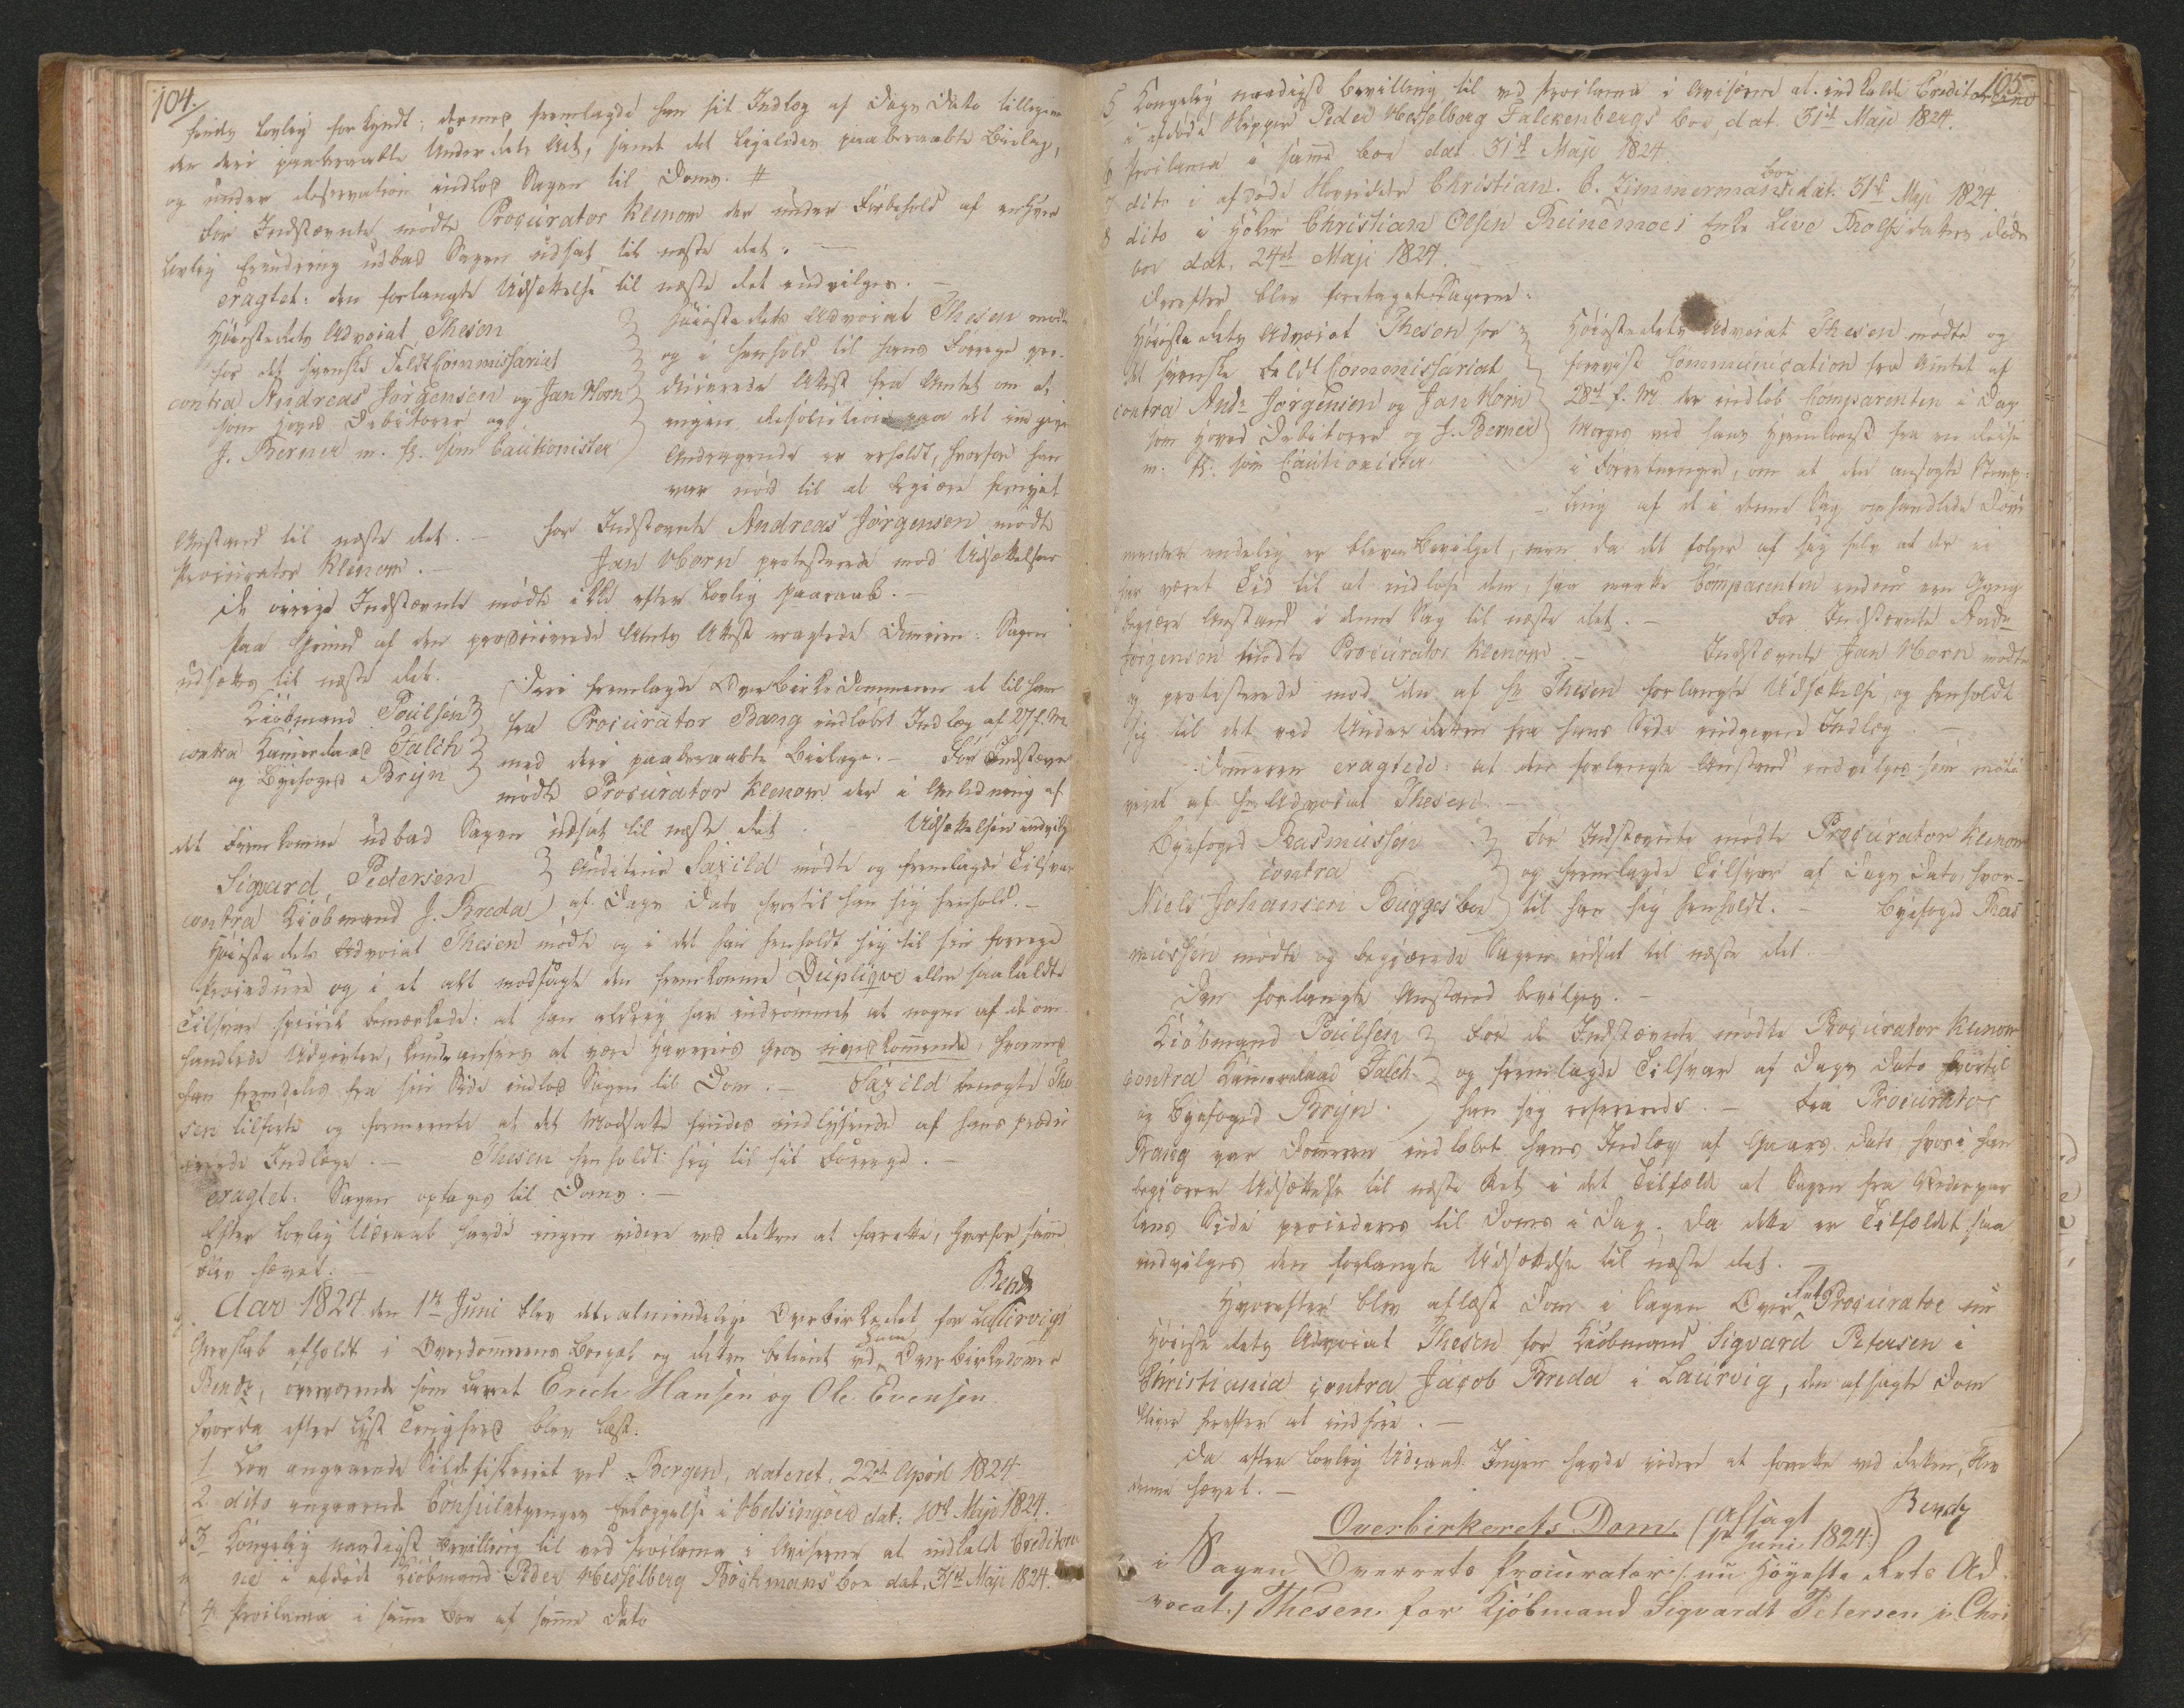 104.
lovlig forkyndt; dernæst fremlagde han sit Indlæg af Dags Dato tilligemed
den deri paaberaabte Underrets Act, samt det ligeledes paaberaabte Bielag,
og under Reservation indlod Sagen til Doms. #
For Indstevnte mødte Procurator Klenow der under Forbehold af enhver
lovlig Erindring udbad Sagen udsat til næste Ret. —
Eragtet: den forlangte Udsættelse til næste Ret indvilges. —
Høiesterets Advocat Thesen
for det svenske Feldt Commissariat
contra Andreas Jørgensen og Jan Horn
som Hoved Debitorer og
J. Berner m. fl. som Cautionister
Høiesterets Advocat Thesen mødte
og i Henhold til hans Forrige pro-
ducerede Attest fra Amtet om at
ingen Resolution paa det indgivne
Andragende er erholdt, hvorfor han
var nød til at begiære fornyet
Anstand til næste Ret. — For Indstevnte Andreas Jørgensen mødte
Procurator Klenow. — Jan Horn protesterede mod Udsættelsen
De øvrige Indstævnte mødte ikke efter lovlig Paaraab. —
Paa Grund af den producerede Amts Attest eragtede Domeren: Sagen
udsættes til næste Ret.
Kiøbmand Poulsen
contra Kammerraad Falch
og Byefoged Bryn
Deri fremlagde Overbirkedommeren et til ham
fra Procurator Bang indløbet Indlæg af 27 f. M.
med deri paaberaabte Bielage. — For Indstævnte
mødte Procurator Klenow der i Anledning af
det Fremkomne udbad Sagen udsat til næste Ret. Udsættelsen indvilges
Sigvard Pedersen
contra Kiøbmand J. Breda
Auditeur Saxild mødte og fremlagde Tilsvar
af Dags Dato hvortil han sig henholdt. —
Høiesterets Advocat Thesen mødte og i det han henholdt sig til sin forrige
Procedure og i et alt modsagde den fremkomne Duplique eller saakaldte
Tilsvar bemærkede: at han aldrig har indrømmet at nogen af de om-
handlede Udgivter, kunde ansees at være Haveries Gros vedkommende, hvormed
han fremdeles fra sin Side indlod Sagen til Dom. — Saxild benegte The
sen tilførte og formeente at det Modsatte findes indlysende af hans produ
cerede Indlæge. — Thesen henholdt sig til sit Forrige. —
Eragtet: Sagen optages til Doms. —
Efter lovlig Udraab havde ingen videre ved Retten at forrette, hvorfor samme
blev hævet. —
Bendz
Aar 1824 den 1te Juni blev det almindelige Overbirkeret for Laurvigs
Grevskab afholdt i Overdommerens Boepæl og Retten betient ved Overbirkedommer
Bendz, overværende som Lavret Erich Hansen og Ole Evensen.
Hvorda efter lyst Tinghed blev læst:
1 Lov angaaende Sildefiskeriet ved Bergen, dateret 22de April 1824
2 dito angaaende Consulatpenges Erlæggelse i Helsingøer dat: 10de Maji 1824.
3 Kongelig naadigst Bevilling til ved Proclama i Aviserne at indkalde Creditorer
ne i afdøde Kiøbmand Peder Hesselberg Bøchmans Boe dat. 31te Maji 1824.
4 Proclama i samme Boe af samme Dato
105.
5 Kongelig naadigst Bevilling til ved Proclama i Aviserne at indkalde Creditorerne
i afdøde Skipper Peder Hesselberg Falckenbergs Boe, dat. 31te Maji 1824.
6 Proclama i samme Boe dat. 31te Maji 1824.
7 dito i afdøde Christian. C. Zimmermans Boe dat. 31te Maji 1824
8 dito i Christian Olsen Enke Live døds
boe dat. 24de Maji 1824.
Derefter blev foretaget Sagerne:
Høieste Rets Advocat Thesen for
det svenske Feldt Commissariat
contra Andr. Jørgensen og Jan Horn
som Hoved Debitorer og J. Berner
m. fl. som Cautionister
Høiesterets Advocat Thesen mødte og
foreviist Communication fra Amtet af
28de f. M. der indløb Comparenten i Dag
Morges ved hans Hjemkomst fra en Reise
i Forretninger, om at den ansøgte Stemp-
ling af de i denne Sag omhandlede Docu
menter endelig er bleven bevilget, men da det følger af sig selv at der ei
har været Tid til at indløse dem, saa maatte Comparenten endnu een Gang
begiære Anstand i denne Sag til næste Ret. — For Indstævnte Andr.
Jørgensen mødte Procurator Klenow. — Indstævnte Jan Horn mødte
og protesterede mod den af Hr. Thesen forlangte Udsættelse, og henholdt
sig til det ved Underretten fra hans Side indgivne Indlæg. —
Domeren eragtede: at den forlangte Anstand indvilges som moti
veret af Hr. Advocat Thesen. —
Byefoged Rasmussen
contra
Niels Johansen Bugges Boe
For Indstævnte mødte Procurator Klenow
og fremlagde Tilsvar af Dags Dato, hvor-
til han sig henholdt. — Byefoged Ras
mussen mødte og begiærede Sagen udsat til næste Ret.
Den forlangte Anstand bevilges. —
Kiøbmand Poulsen
contra Kammerraad Falch
og Byefoged Bryn.
For de Indstævnte mødte Procurator Klenow
og fremlagde Tilsvar af Dags Dato hvortil
han sig refererede. — Fra Procurator
Bang var Domeren indløbet hans Indlæg af Gaars Dato, hvori han
begiærer Udsættelse til næste Ret i det Tilfælde at Sagen fra Vederpar
tens Side procederes til Doms i Dag. Da dette er Tilfældet saa
indvilges den forlangte Udsættelse til næste Ret. —
Hvorefter blev aflæst Dom i Sagen Over Rets Procurator nu
Høieste Rets Advocat Thesen for Kiøbmand Sigvard Petersen i
Christiania contra Jacob Breda i Laurvig, den afsagte Dom
bliver herefter at indføre. —
Da efter lovlig Udraab Ingen havde videre at forrette ved Retten, blev
denne hævet. —
Bendz
Overbirkerets Dom. (afsagt
1te Juni 1824.)
i Sagen Overrets Procurator /: nu Høyeste Rets Ad-
vocat :/ Thesen for Kjøbmand Sigvardt Petersen i Chri